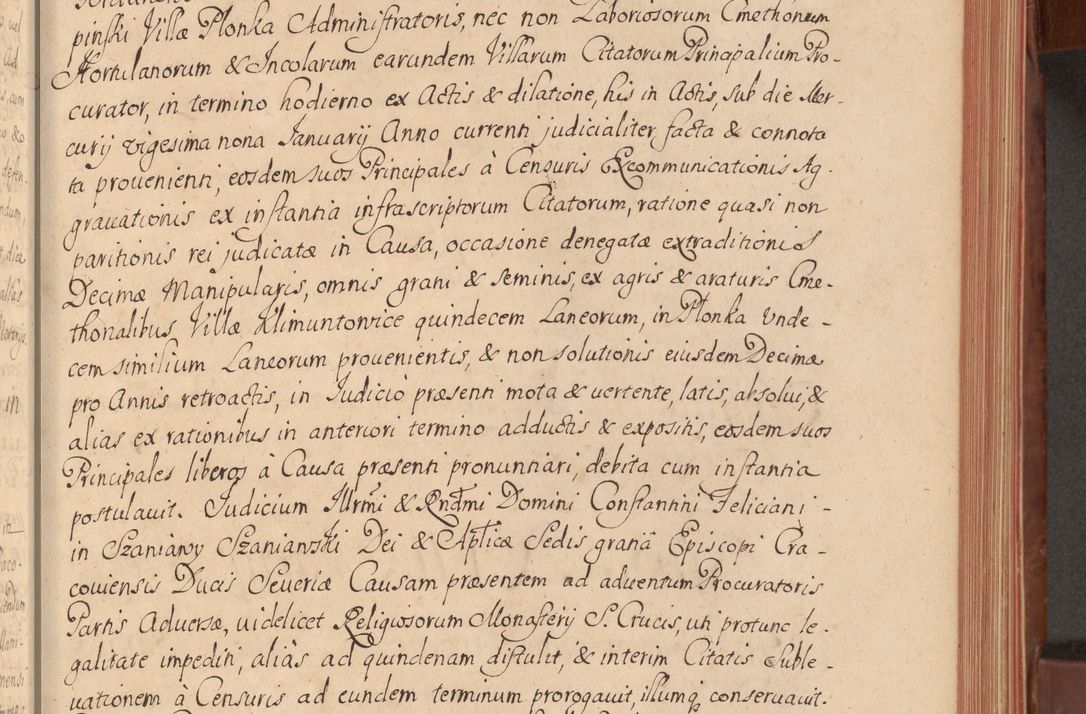 pinski Villæ Płonka Administratoris, nec non Laboriosorum Cmethonum
Hortulanorum & Incolarum earundem Villarum Citatorum Principalium Pro-
curator, in termino hodierno ex Actis & dilatione, his in Actis, sub die Mer-
curij vigesima nona Januarij Anno currenti judicialiter facta & connota
ta prouenienti, eosdem suos Principales à Censuris Excommunicationis Ag-
grauationis ex instantia infrascriptorum Citatorum, ratione quasi non
paritionis rei judicatæ in Causa, occasione denegatæ extraditionis
Decimæ Manipularis, omnis grani & seminis, ex agris & araturis Cme-
thonalibus Villæ Klimuntowice quindecem Laneorum, in Płonka Vnde-
cem similium Laneorum prouenientis, & non solutionis eiusdem Decimæ
pro Annis retroactis, in Judicio præsenti mota & uertente, latis, absolui, &
alias ex rationibus in anteriori termino adductis & expositis, eosdem suos
Principales liberos à Causa præsenti pronuntiari, debita cum instantia
postulauit. Judicium Illrmi & Rndmi Domini Constantini Feliciani-
in Szaniawy Szaniawski Dei & Aplicæ Sedis gratiã Episcopi Cra-
couiensis Ducis Seueriæ Causam præsentem ad aduentum Procuratoris
Partis Aduersæ, uidelicet Religiosorum Monasterij S. Crucis, uti protunc le-
galitate impediti, aliàs ad quindenam distulit, & interim Citatis Suble-
uationem à Censuris ad eundem terminum prorogauit, illumq conseruauit.